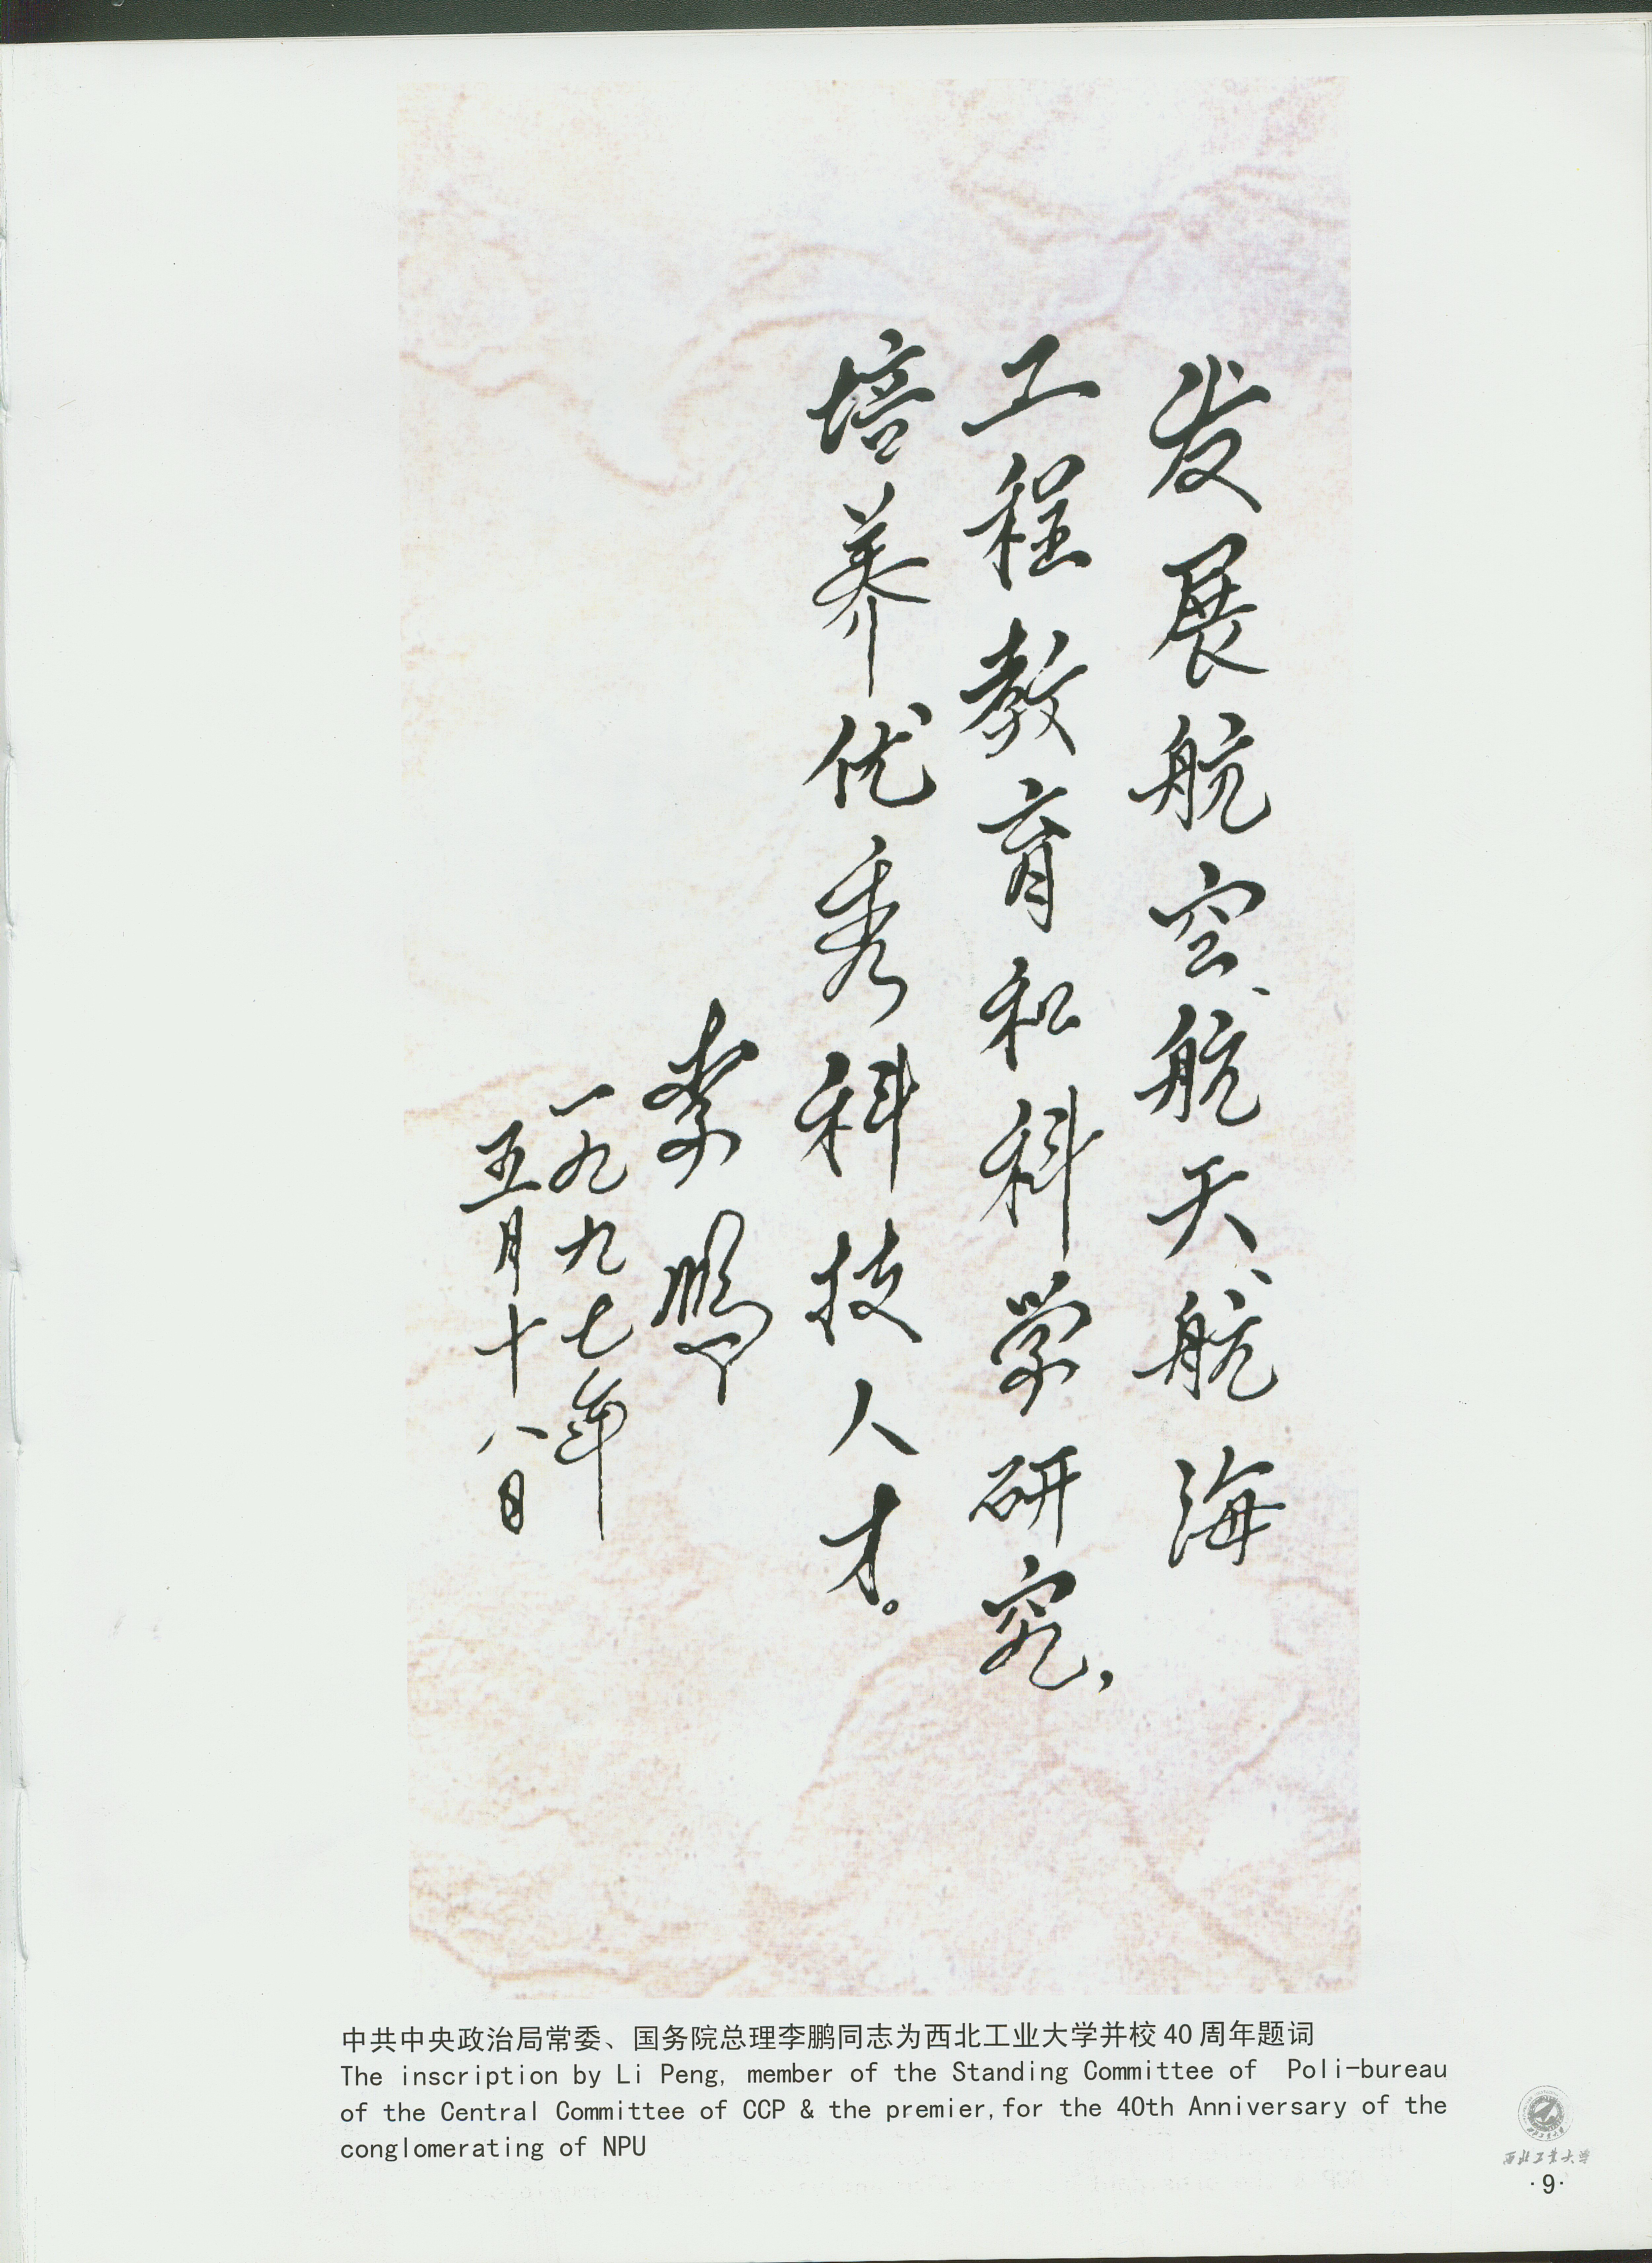 发展航空、航天、航海
工程教育和科学研究，
培养优秀科技人才。
李鹏
一九九七年
五月十八日
中共中央政治局常委、国务院总理李鹏同志为西北工业大学并校40周年题词
The inscription by Li Peng, member of the Standing Committee of Poli-bureau
of the Central Committee of CCP & the premier,for the 40th Anniversary of the
conglomerating of NPU
西北工业大学
·9·